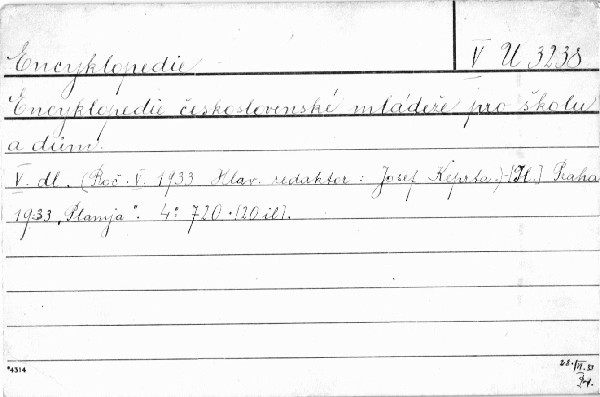 Encyklopedie
V U 3238
Encyklopedie československé mládeže pro školu
a dům.
V. dl. (Roč. V. 1933 Hlav. redaktor: Josef Keprta.)-[Il.] Praha
1933 „Plamja“. 4° 720.[20 il].
*4314